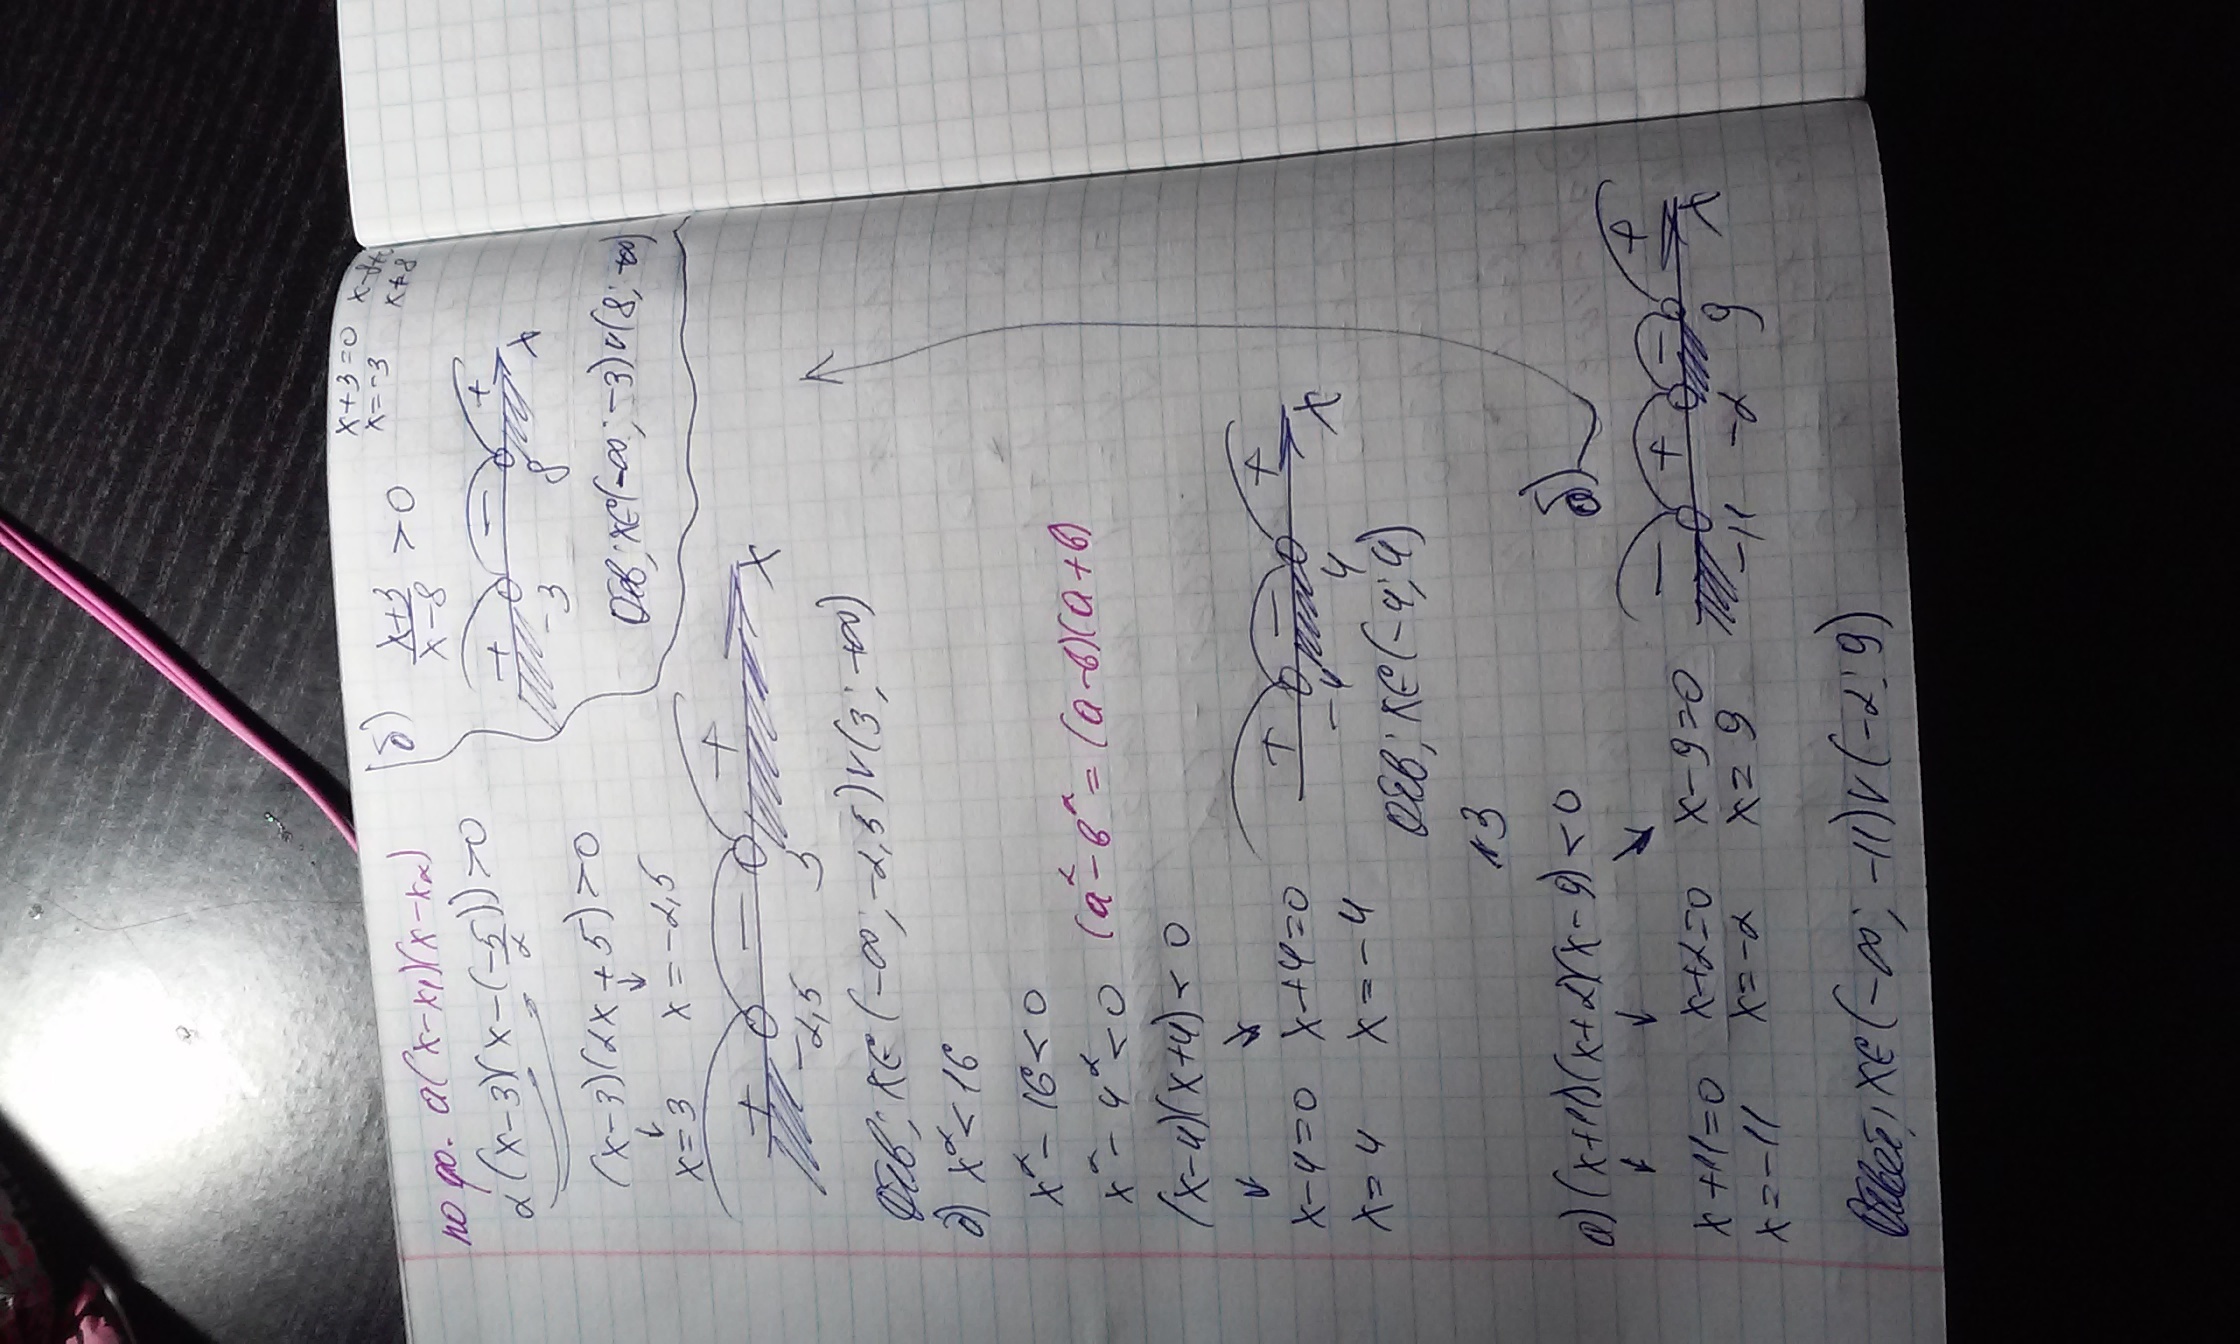 по фо. a(x-x₁)(x-x₂)
2(x-3)(x-(-5/2))>0
(x-3)(2x+5)>0
x=3 x=-2,5
+ - + x
-2,5 3
Отв; x∈(-∞; -2,5)∨(3; +∞)
б) x+3/x-8 >0
x+3=0
x=-3
x+8
+ - + x
-3 8
Отв; x∈(-∞; -3)∨(8; +∞)
д) x²<16
x²-16<0
x²-4²<0 (a²-в²=(a-в)(a+в)
(x-4)(x+4)<0
x-4=0 x+4=0
x=4 x=-4
+ - + x
-4 4
Отв; x∈(-4; 4)
№3
а) (x+11)(x+2)(x-9)<0
б)
x+11=0 x+2=0 x-9=0
x=-11 x=-2 x=9
- + - + x
-11 -2 9
Ответ; x∈(-∞; -11)∨(-2; 9)